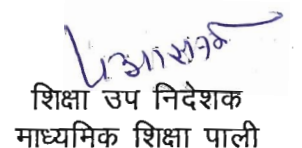 शिक्षा उप निदेशक
माध्यमिक शिक्षा पाली